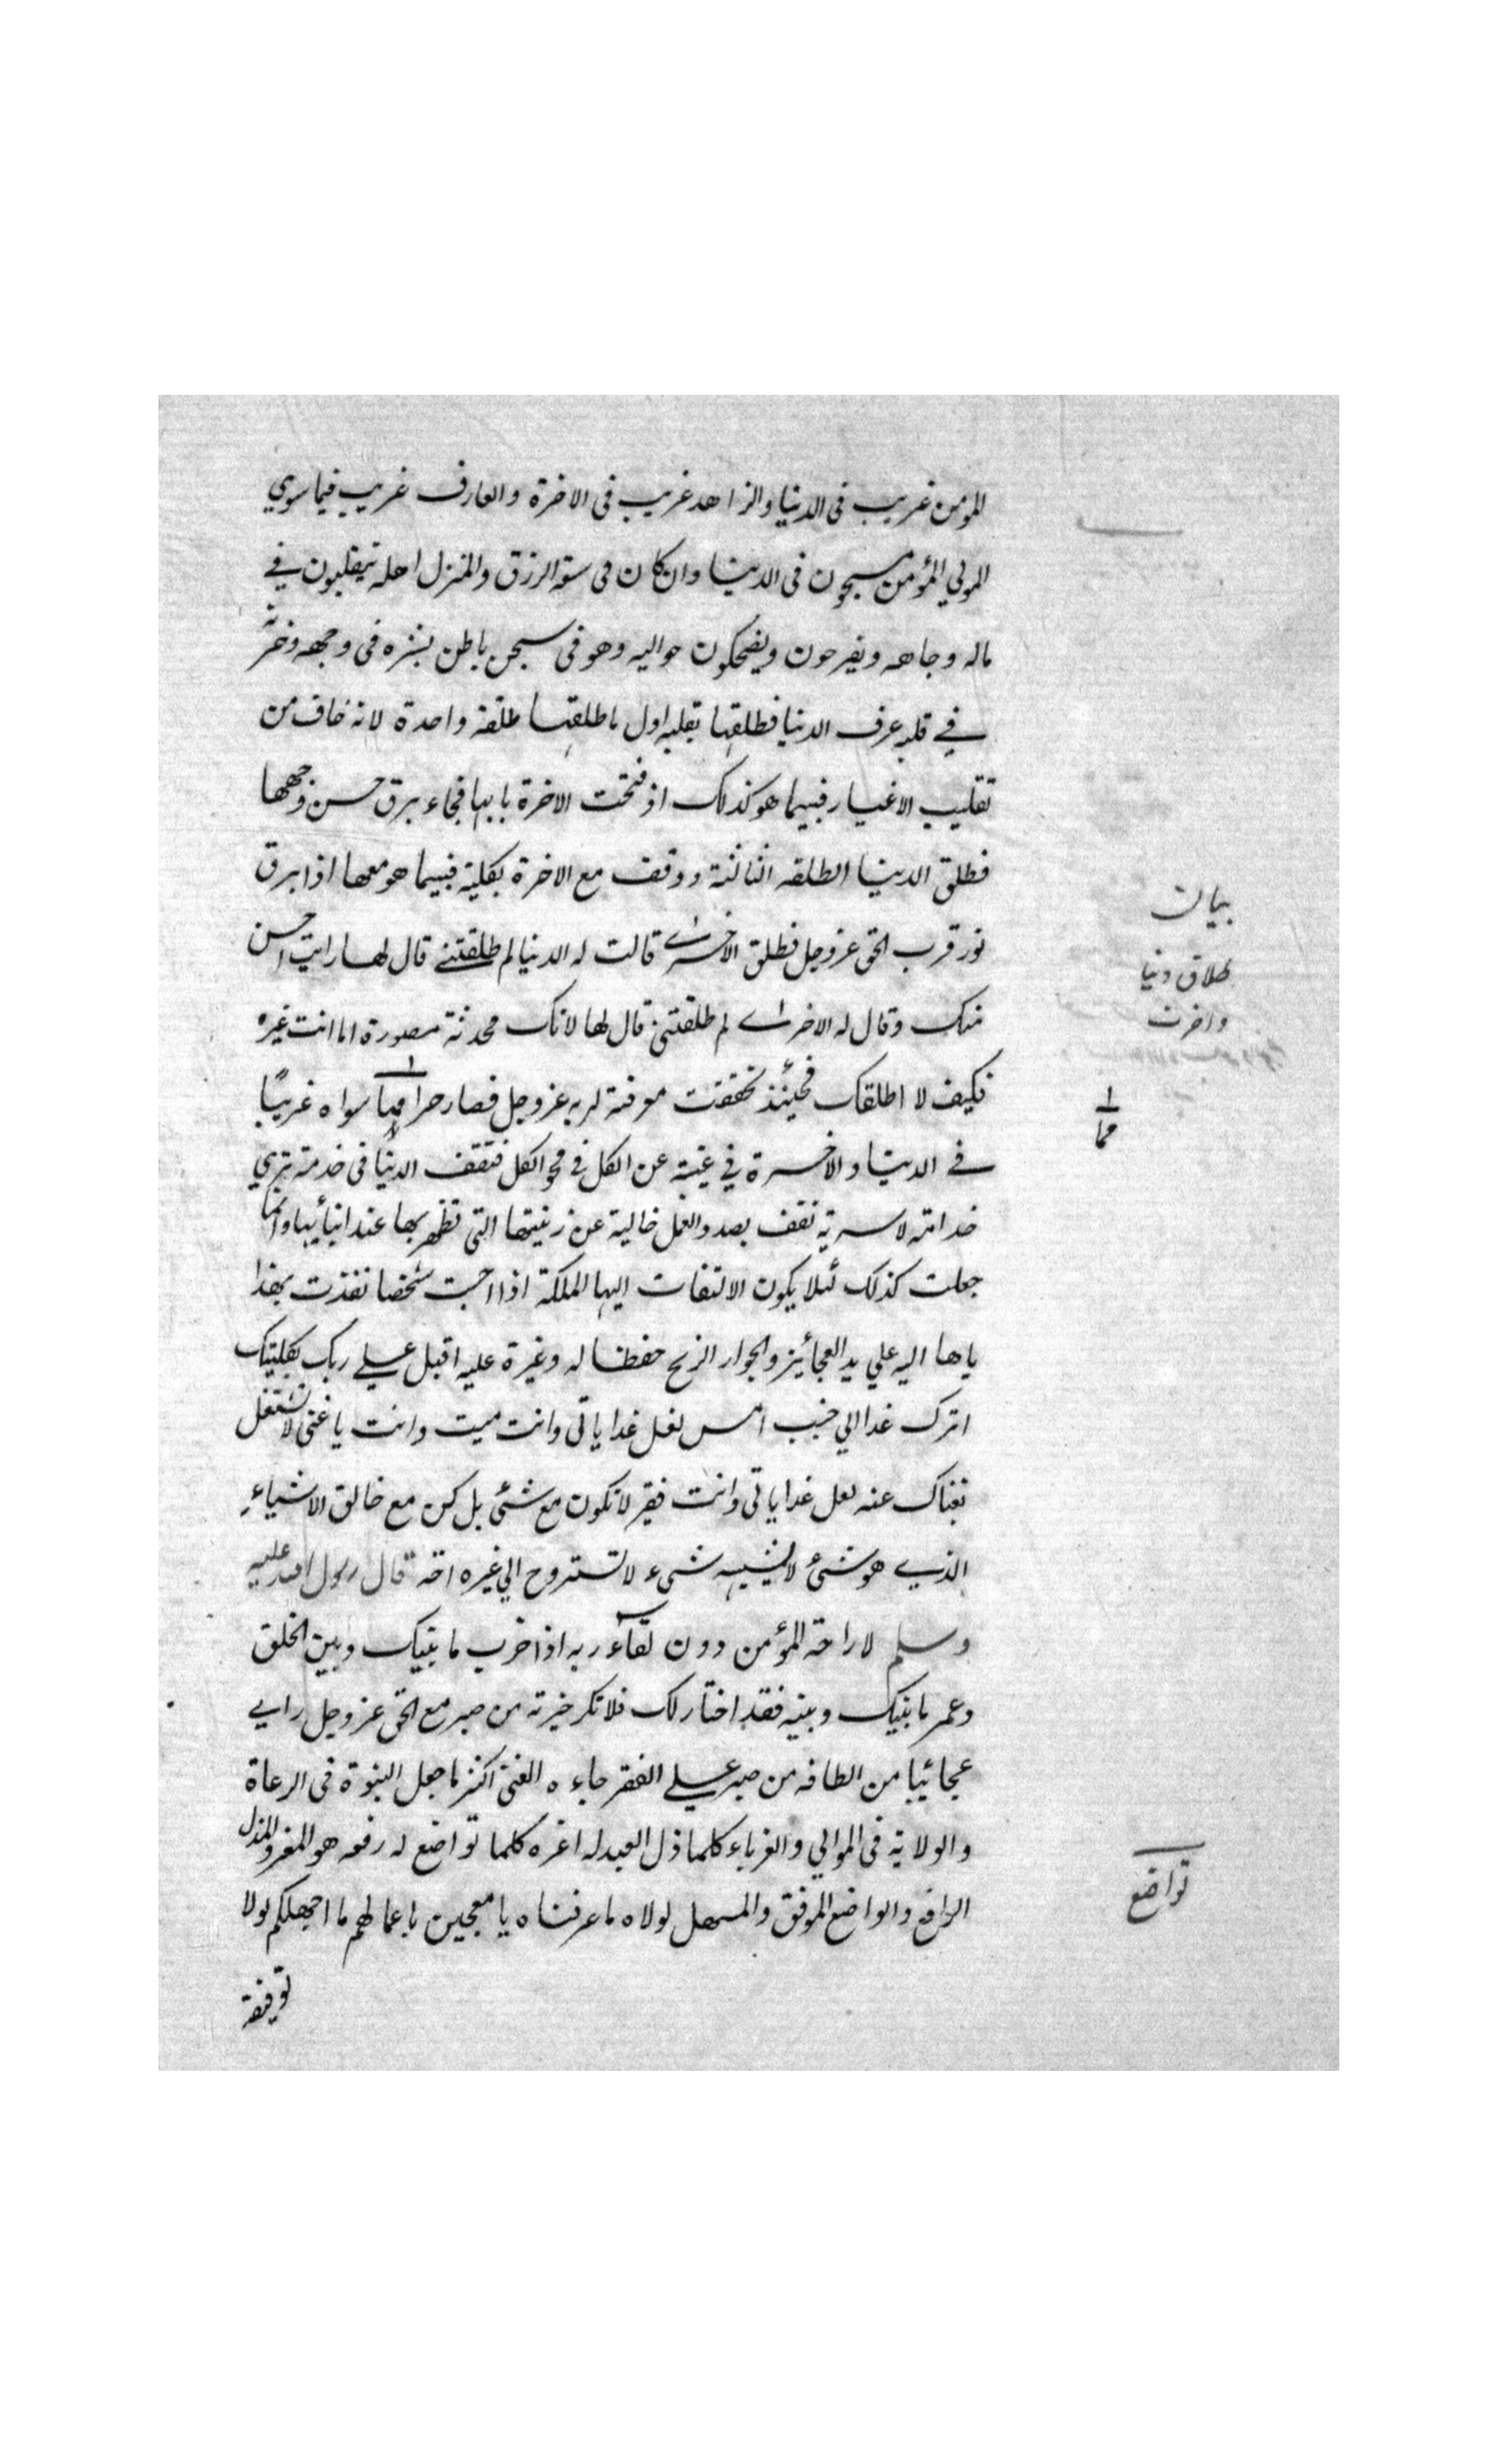 المومن غريب في الدنيا والزاهد غريب في الاخرة والعارف غريب فيما سوي
المولي المؤمن مسجون في الدنيا وان كان في سعة الرزق والمنزل اهله يتقلبون في
ماله وجاهه ويفرحون ويضحكون حواليه وهو في سجن باطن بشره في وجهه وحزنه
في قلبه عرف الدنيا فطلقها بقلبه اول ما طلقها طلقة واحدة لانه خاف من
تقليب الاغيار فبينما هو كذلك اذ فتحت الاخرة بابها فجاء برق حسن وجهها
فطلق الدنيا الطلقه الثانية ووقف مع الاخرة بكليته فبينما هو معها اذا برق
نور قرب الحق عز وجل فطلق الاخرى قالت له الدنيا لم طلقتني قال لها رايت احسن
منك وقال له الاخرى لم طلقتني قال لها لانك محدثة مصورة اما انت غيره
فكيف لا اطلقك فحينئذ تحققت معرفته لربه عز وجل فصار حرا مما سواه غريبًا
في الدنيا والاخرة في غيبة عن الكل في محو الكل فتقف الدنيا في خدمته
خدامته لا سرية تقف بصدد العمل خالية عن زينتها التي تظهر بها عند ابنائها وانما
جعلت كذلك لئلا يكون الالتفات اليها الملكة اذا احبت شخصا نفذت بهذا
ياها اليه علي يد العجائيز والجوار الزنج حفظا له وغيرة عليه اقبل علي ربك بكليتك
اترك غدا الي جنب امس لعل غدا ياتي وانت ميت وانت يا غني لا تشتغل
بغناك عنه لعل غدا ياتي وانت فقير لا تكون مع شئ بل كن مع خالق الاشياء
الذي هو شئ لا يشبهه شيء لا تستروح الي غيره قال رسول الله عليه
وسلم لا راحة المؤمن دون لقاء ربه اذا خرب ما بينك وبين الخلق
وعمر ما بينك وبينه فقد اختار لك فلا تكر خيرته من صبر مع الحق عز وجل راي
عجائبا من الطافه من صبر علي الفقر جاءه الغني اكثر ما جعل النبوة في الرعاة
والولاية في الموالي والغرباء كلما ذل العبد له اعزه كلما تواضع له رفعه هو المعز والمذل
الرافع والواضع الموفق والمسهل لولاه ما عرفناه يا معجبين باعمالهم ما اجهلكم لولا
توفيقه
بيان
طلاق دنيا
واخرت
مما
تواضع